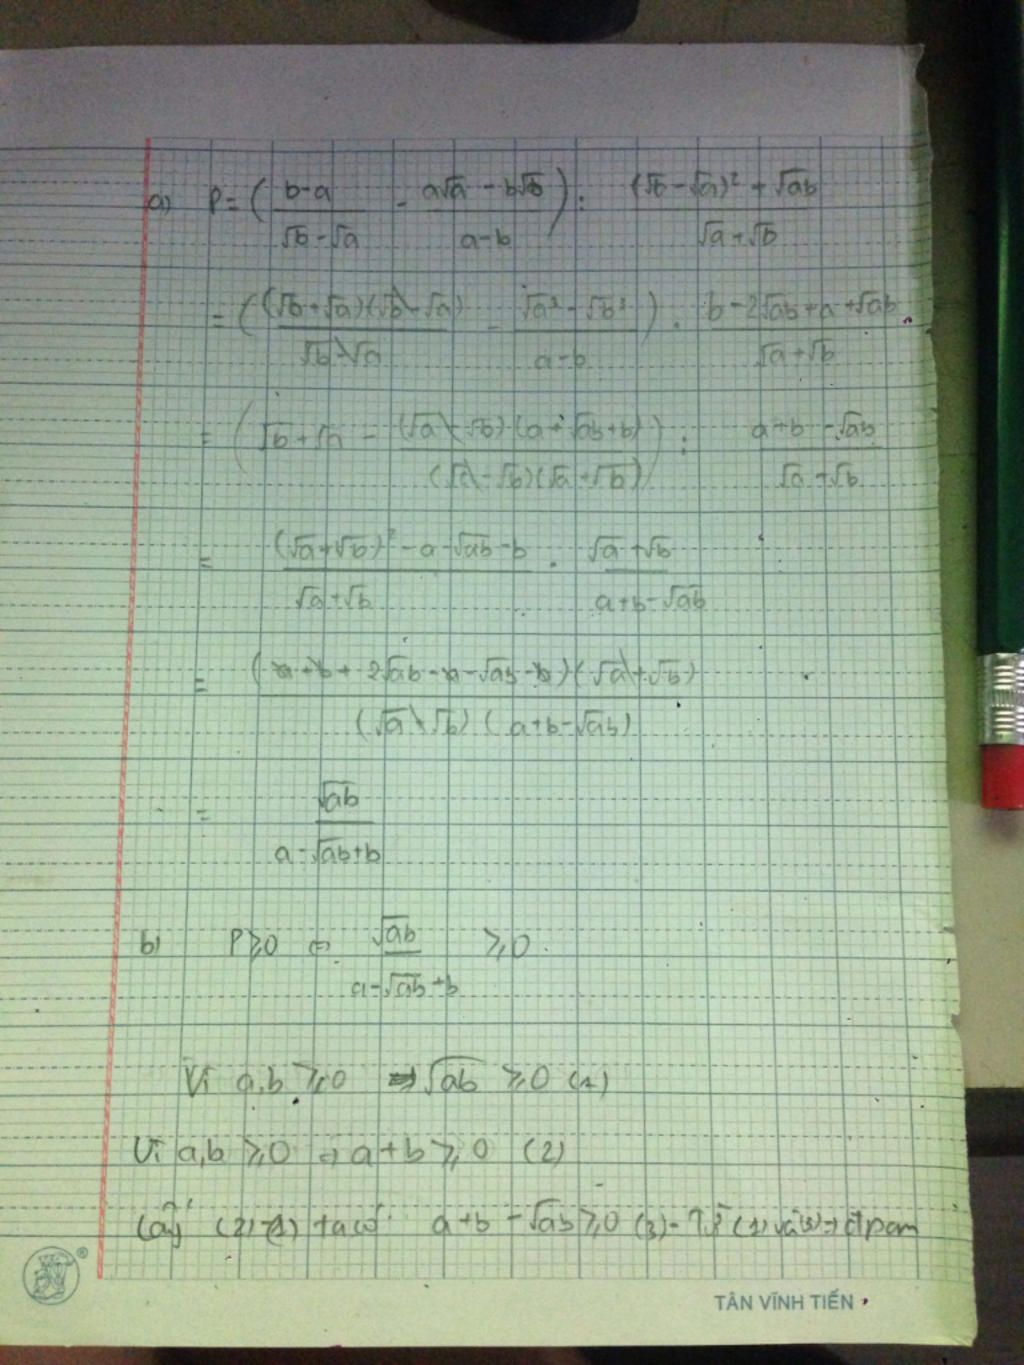 a) P = ( (b-a)/(√b-√a) - (a√a - b√b)/(a-b) ) : ((√b-√a)² + √ab)/(√a+√b)
= ( ((√b+√a)(√b-√a))/(√b-√a) - (√a³-√b³)/(a-b) ) : (b-2√ab+a+√ab)/(√a+√b)
= ( √b+√a - ((√a-√b)(a+√ab+b))/((√a-√b)(√a+√b)) ) : (a+b-√ab)/(√a+√b)
= ((√a+√b)²-a-√ab-b)/(√a+√b) . (√a+√b)/(a+b-√ab)
= ((a+b+2√ab-a-√ab-b)(√a+√b))/((√a+√b).(a+b-√ab))
= √ab/(a-√ab+b)
b) P ≥ 0 ⇔ √ab/(a-√ab+b) ≥ 0
Vì a,b ≥ 0 ⇒ √ab ≥ 0 (1)
Vì a,b ≥ 0 ⇒ a+b ≥ 0 (2)
Lấy (2)-(1) ta có: a+b-√ab ≥ 0 (3) - Từ (1) và (3) ⇒ đpcm
®
TÂN VĨNH TIẾN